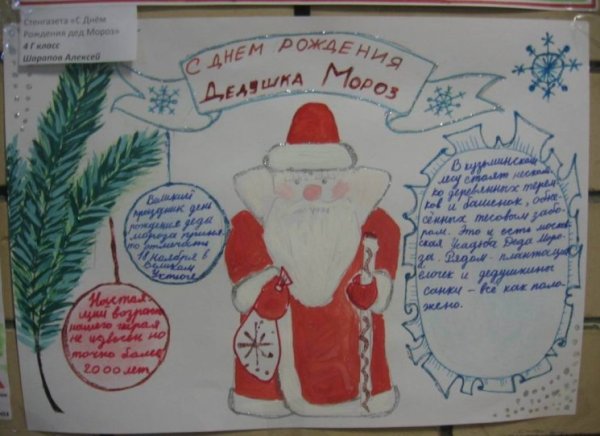 Стенгазета «С Днём
Рождения дед Мороз»
4 Г класс
Шарапов Алексей
С ДНЕМ РОЖДЕНИЯ
ДЕДУШКА МОРОЗ
Великий
праздник день
рождения деда
мороза принея-
то отмечать
18 ноября в
Великом
Устюге
Настая-
щий возраст
нашего героя
не извесен но
точно более
2000 лет
В кузьминском
лесу стоят несколь-
ко деревянных терем-
ков и башенок, обне-
сённых тесовым забо-
ром. Это и есть моско-
вская Усадьба Деда Моро-
за. Рядом - плантация
ёлочек и дедушкины
сани - всё как поло-
жено.